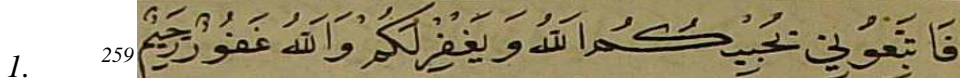 1. 259 فَاتَّبَعُونِي يُحْبِبْكُمُ اللهُ وَيَغْفِرْ لَكُمْ وَاللهُ غَفُورٌ رَحِيمٌ